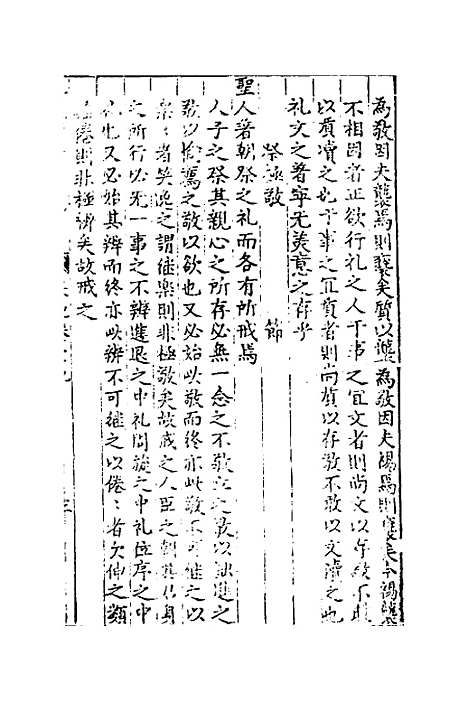 為敬因夫襲焉則褻矣質以襲為敬因夫裼焉則褻矣今裼襲
不相因者正欲行礼之人于事之宜文者則尚文以存敬不敢
以質瀆之也于事之宜質者則尚質以存敬不敢以文瀆之也
礼文之著寧无美意之存乎
祭極敬 節
聖人著朝祭之礼而各有所戒焉
人子之祭其親心之所存必無一念之不敬立之敬以詘進之
敬以愉薦之敬以欲也又必始以敬而終亦以敬不可継之以
樂：者笑之謂継樂則非極敬矣故戒之人臣之朝其君身
之所行必无一事之不辨進退之中礼周旋之中礼位序之中
礼也又必始其辨而終亦以辨不可継之以倦：者欠伸之類
倦則非極辨矣故戒之